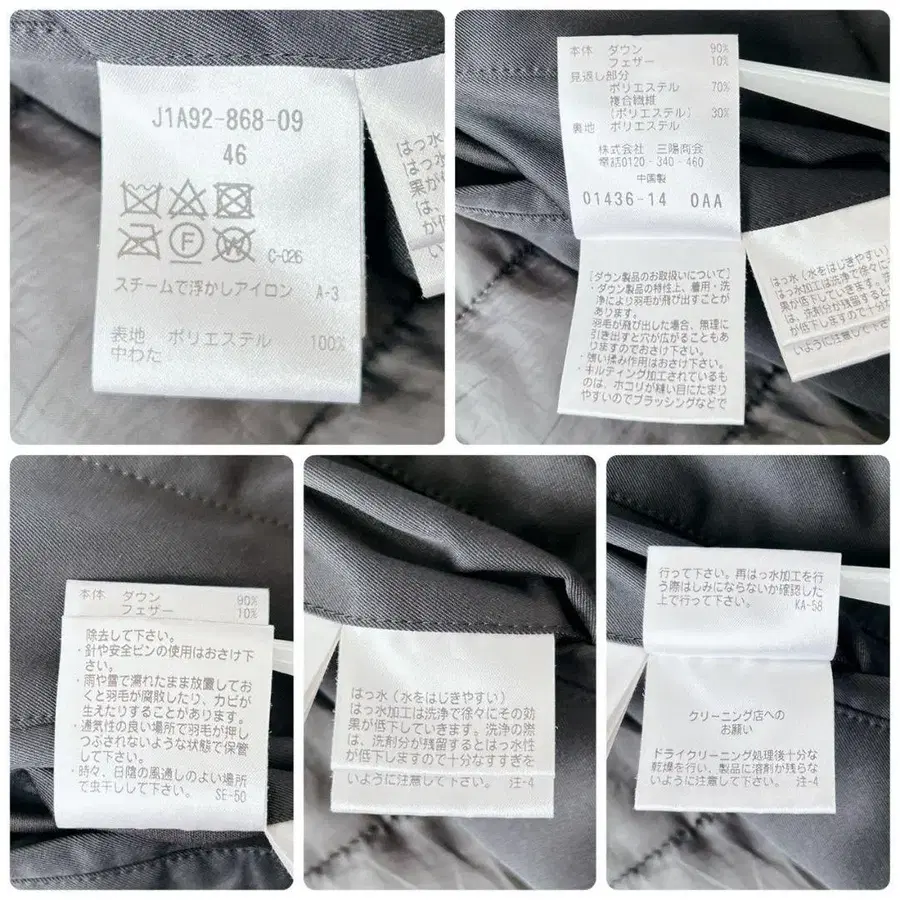 J1A92-868-09
46
F
W
C-026
スチームで浮かしアイロン A-3
表地 ポリエステル 100%
中わた
はっ水
はっ水
果が
は、
が低
い
本体 ダウン 90%
フェザー 10%
見返し部分
ポリエステル 70%
複合繊維
(ポリエステル) 30%
裏地 ポリエステル
株式会社 三陽商会
電話0120-340-460
中国製
01436-14 0AA
[ダウン製品のお取扱いについて]
・ダウン製品の特性上、着用・洗
浄により羽毛が飛び出すことが
あります。
羽毛が飛び出した場合、無理に
引き出すと穴が広がることもあ
りますのでおさけ下さい。
・強い揉み作用はおさけ下さい。
・キルティング加工されているも
のは、ホコリが縫い目にたまり
やすいのでブラッシングなどで
はっ水(水をはじきやすい)
はっ水加工は洗浄で徐々に
果が低下していきます。洗
は、洗剤分が残留すると
が低下しますので十分
いように注意して下さい
本体 ダウン 90%
フェザー 10%
除去して下さい。
・針や安全ピンの使用はおさけ下
さい。
・雨や雪で濡れたまま放置してお
くと羽毛が腐敗したり、カビが
生えたりすることがあります。
・通気性の良い場所で羽毛が押し
つぶされないような状態で保管
して下さい。
・時々、日陰の風通しのよい場所
で虫干しして下さい。 SE-50
はっ水(水をはじきやすい)
はっ水加工は洗浄で徐々にその効
果が低下していきます。洗浄の際
は、洗剤分が残留するとはっ水性
が低下しますので十分なすすぎを
いように注意して下さい。 注-4
行って下さい。再はっ水加工を行
う際はしみにならないか確認した
上で行って下さい。 KA-58
クリーニング店への
お願い
ドライクリーニング処理後十分な
乾燥を行い、製品に溶剤が残らな
いように注意して下さい。 注-4